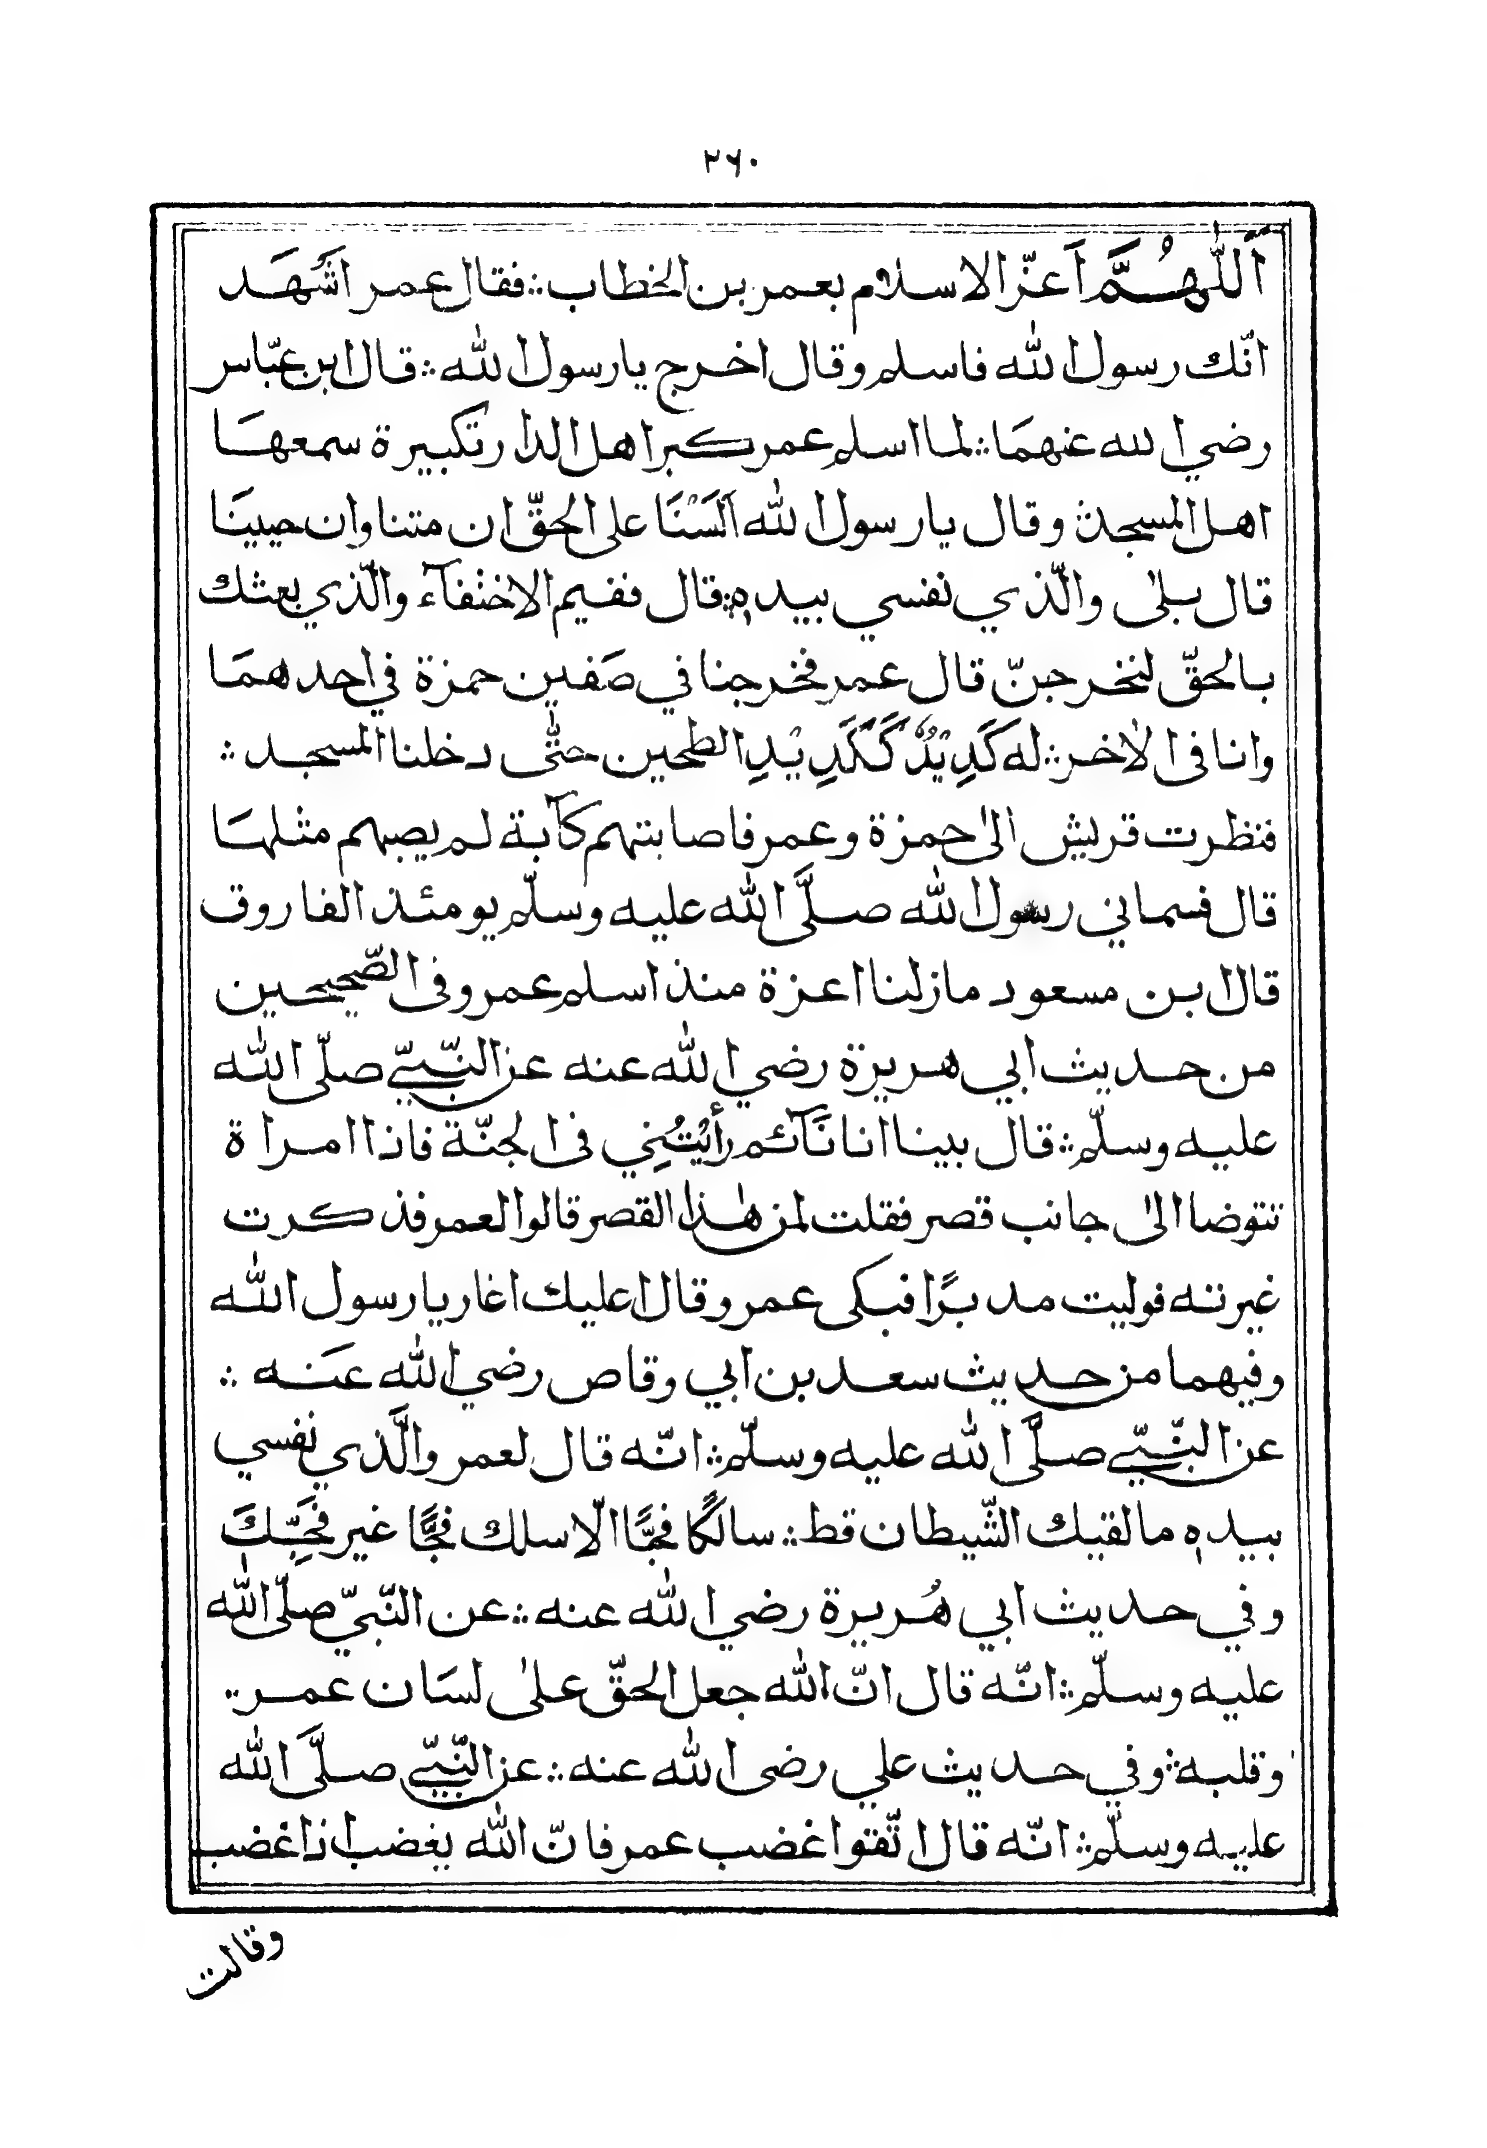 ٢٦٠
اَللّٰهُمَّ اَعزّ الاسلام بعمر بن الخطاب ؞ فقال عمر اشْهَد
انّك رسول الله فاسلم وقال اخرج يا رسول الله ؞ قال ابن عبّاس
رضي الله عنهمَا ؞ لما اسلم عمر كبر اهل الدار تكبيرة سمعهَا
اهل المسجد ؞ وقال يا رسول الله اَلَسْنَا على الحقّ ان متنا وان حيينَا
قال بلىٰ والّذي نفسي بيده ؞ قال ففيم الاختفآء والّذي بعثك
بالحقّ لنخرجنّ قال عمر فخرجنا في صَفين حمزة في احدهمَا
وانا في الاٰخر ؞ له كَدِيْدٌ كَكَدِيْدِ الطحين حتّٰى دخلنا المسجد ؞
فنظرت قريش الىٰ حمزة وعمر فاصابتهم كآبة لم يصبهم مثلهَا
قال فسماني رسول الله صلَّى الله عليه وسلّم يومئذ الفاروق
قال ابن مسعود مازلنا اعزة منذ اسلم عمر وفي الصّحيحين
من حديث ابي هريرة رضي الله عنه عن النّبيّ صلّى الله
عليه وسلّم ؞ قال بينا انا نَآئم رأَيْتُنِي في الجنّة فاذا امراة
تتوضا الىٰ جانب قصر فقلت لمن هٰذا القصر قالوا لعمر فذكرت
غيرته فوليت مدبرًا فبكى عمر وقال اعليك اغار يا رسول الله
وفيهما من حديث سعد بن ابي وقاص رضي الله عنه ؞
عن النّبيّ صلَّى الله عليه وسلّم ؞ انّه قال لعمر والَّذي نفسي
بيده ما لقيك الشّيطان قط ؞ سالكًا فجًّا الّا سلك فجًّا غير فجّكَ
وفي حديث ابي هُريرة رضي الله عنه ؞ عن النّبيّ صلّى الله
عليه وسلّم ؞ انّه قال انّ الله جعل الحقّ علىٰ لسَان عمر ؞
وقلبه ؞ وفي حديث علي رضى الله عنه ؞ عن النّبيّ صلَّى الله
عليه وسلّم ؞ انّه قال اتّقوا غضب عمر فانّ الله يغضب اذا غضب
وقالت